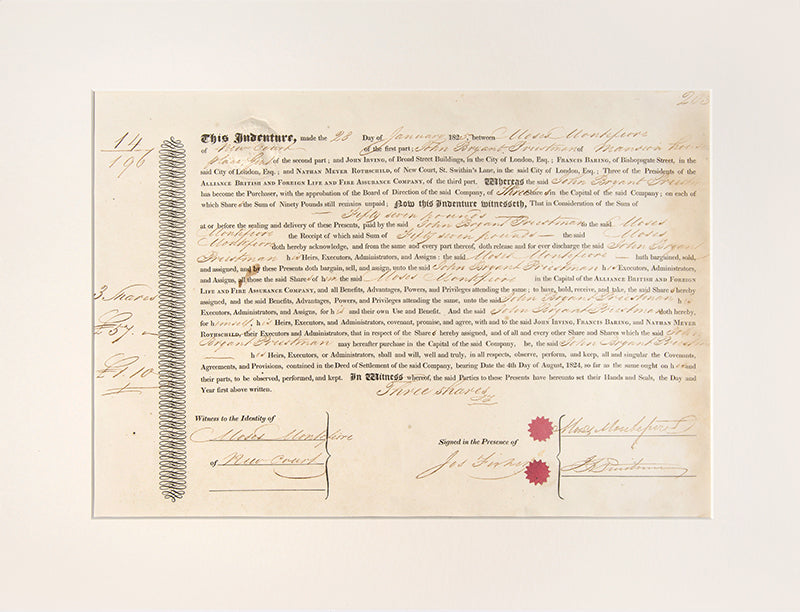 14
196
This Indenture, made the 28 Day of January 182 between Moses Montefiore
of New Court of the first part; John Bryant Priestman of Mansion House
Place, of the second part; and JOHN IRVING, of Broad Street Buildings, in the City of London, Esq.; FRANCIS BARING, of Bishopsgate Street, in the
said City of London, Esq.; and NATHAN MEYER ROTHSCHILD, of New Court, St. Swithin's Lane, in the said City of London, Esq.; Three of the Presidents of the
ALLIANCE BRITISH AND FOREIGN LIFE AND FIRE ASSURANCE COMPANY, of the third part. Whereas the said John Bryant Priestman
has become the Purchaser, with the approbation of the Board of Direction of the said Company, of Three Shares in the Capital of the said Company; on each of
which Shares the Sum of Ninety Pounds still remains unpaid; Now this Indenture witnesseth, That in Consideration of the Sum of
— Fifty seven pounds —
at or before the sealing and delivery of these Presents, paid by the said John Bryant Priestman to the said Moses
Montefiore the Receipt of which said Sum of Fifty seven pounds — the said Moses
Montefiore doth hereby acknowledge, and from the same and every part thereof, doth release and for ever discharge the said John Bryant
Priestman his Heirs, Executors, Administrators, and Assigns: the said Moses Montefiore — hath bargained, sold,
and assigned, and by these Presents doth bargain, sell, and assign, unto the said John Bryant Priestman his Executors, Administrators,
and Assigns, all those the said Shares of him the said Moses Montefiore in the Capital of the ALLIANCE BRITISH AND FOREIGN
LIFE AND FIRE ASSURANCE COMPANY, and all Benefits, Advantages, Powers, and Privileges attending the same; to have, hold, receive, and take, the said Shares hereby
assigned, and the said Benefits, Advantages, Powers, and Privileges attending the same, unto the said John Bryant Priestman his
Executors, Administrators, and Assigns, for his and their own Use and Benefit. And the said John Bryant Priestman doth hereby,
for himself, his Heirs, Executors, and Administrators, covenant, promise, and agree, with and to the said JOHN IRVING, FRANCIS BARING, and NATHAN MEYER
ROTHSCHILD, their Executors and Administrators, that in respect of the Shares hereby assigned, and of all and every other Share and Shares which the said John
Bryant Priestman may hereafter purchase in the Capital of the said Company, he, the said John Bryant Priestman
— his Heirs, Executors, or Administrators, shall and will, well and truly, in all respects, observe, perform, and keep, all and singular the Covenants,
Agreements, and Provisions, contained in the Deed of Settlement of the said Company, bearing Date the 4th Day of August, 1824, so far as the same ought on his and
their parts, to be observed, performed, and kept. In Witness whereof, the said Parties to these Presents have hereunto set their Hands and Seals, the Day and
Year first above written. Three shares
3 Shares
£57. —
£1.10
Witness to the Identity of
Moses Montefiore
of New Court
Signed in the Presence of
Jos
Moses Montefiore
Priestman